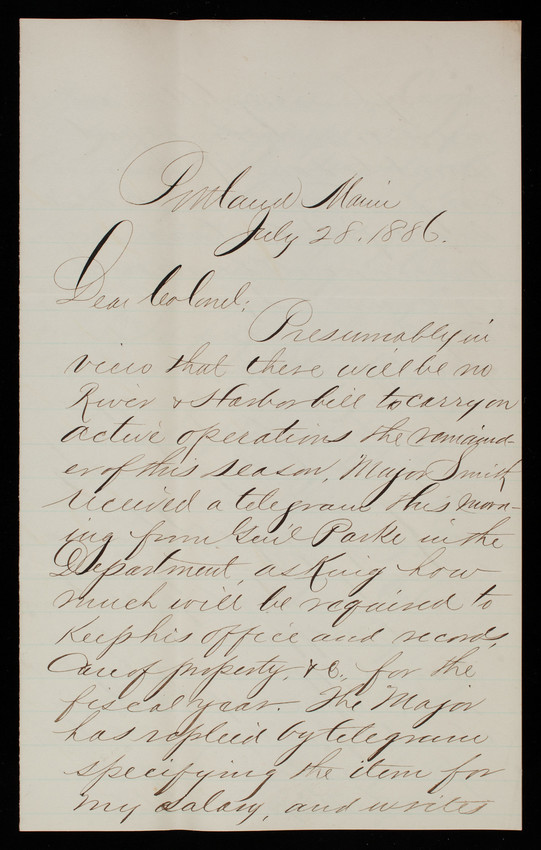 Portland Maine
July 28. 1886.
Dear Colonel:
Presumably in
view that there will be no
River & Harbor bill to carry on
active operations the remaind-
er of this season, Major Smith
received a telegram this morn-
ing from Gen'l Parke in the
Department, asking how
much will be required to
keep his office and records,
care of property, &c., for the
fiscal year. The Major
has replied by telegram
specifying the item for
my salary, and writes